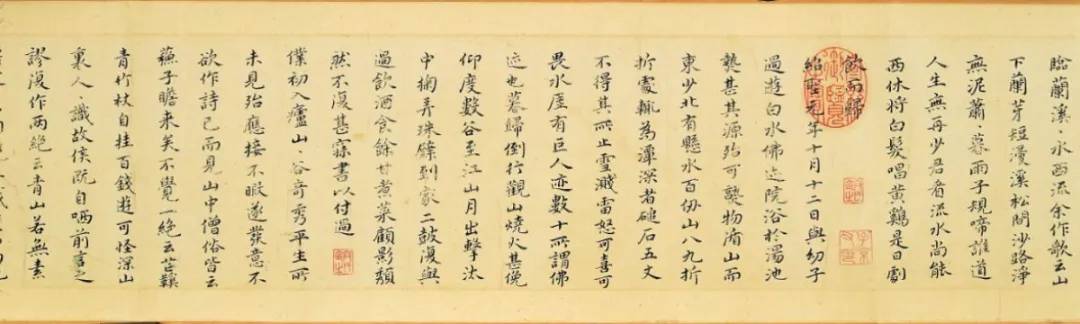 臨蘭溪〻水西流余作歌云山
下蘭芽短浸溪松間沙路淨
無泥蕭〻暮雨子規啼誰道
人生無再少君看流水尚能
西休將白髮唱黃鷄是日劇
飲而歸
紹聖元年十月十二日與幼子
過遊白水佛迹院浴於湯池
熱甚其源殆可熟物循山而
東少北有懸水百仞山八九折
折處輒為潭深者磓石五丈
不得其所止雪濺雷怒可喜可
畏水厓有巨人迹數十所謂佛
迹也暮歸倒行觀山燒火甚俛
仰度數谷至江山月出擊汰
中掬弄珠璧到家二鼓復與
過飲酒食餘甘煮菜顧影頹
然不復甚寐書以付過
僕初入廬山〻谷奇秀平生所
未見殆應接不暇遂發意不
欲作詩已而見山中僧俗皆云
蘇子瞻來矣不覺一絕云芒鞵
青竹杖自挂百錢遊可怪深山
裏人〻識故侯既自哂前言之
謬復作兩絕云青山若無素